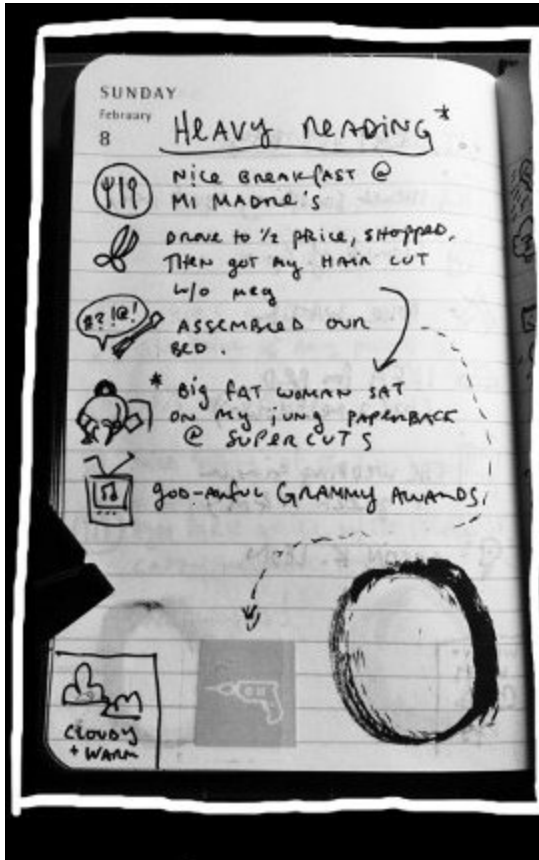 SUNDAY
February
8
HEAVY READING*
NICE BREAKFAST @
MI MADRE'S
DROVE TO 1/2 PRICE, SHOPPED.
THEN GOT MY HAIR CUT
W/O MEG
#?!@!
ASSEMBLED OUR
BED.
* BIG FAT WOMAN SAT
ON MY JUNG PAPERBACK
@ SUPERCUTS
GOD-AWFUL GRAMMY AWARDS.
CLOUDY
+ WARM